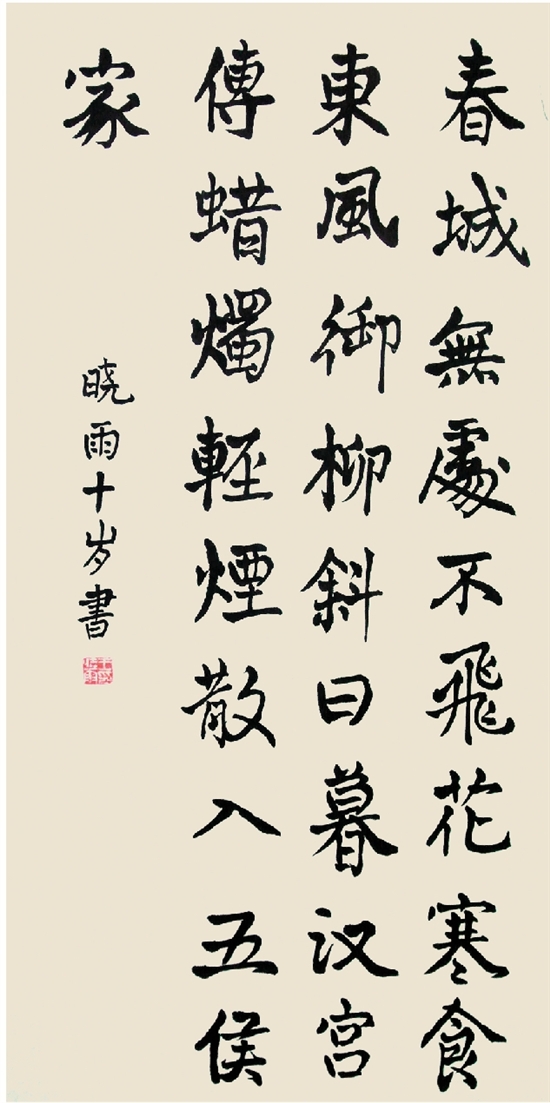 春城無處不飛花寒食
東風御柳斜日暮汉宫
傳蜡燭輕煙散入五侯
家
晓雨十岁書